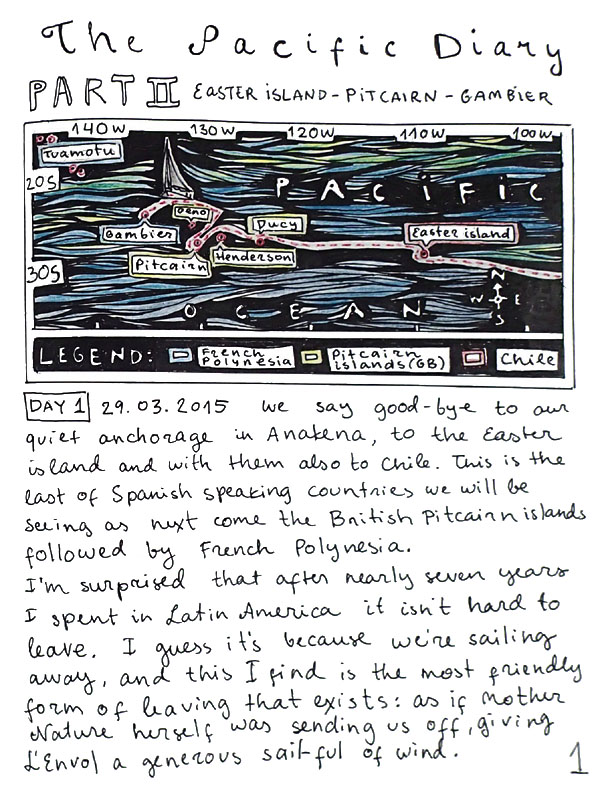 The Pacific Diary
PART II EASTER ISLAND - PITCAIRN - GAMBIER
140W 130W 120W 110W 100W
Tuamotu
20S
PACIFIC
Oeno
Gambier
Ducy
Easter island
Pitcairn
Henderson
30S
N
W E
S
OCEAN
LEGEND: French Polynesia Pitcairn islands(GB) Chile
DAY 1 29.03.2015 We say good-bye to our
quiet anchorage in Anakena, to the Easter
island and with them also to Chile. This is the
last of Spanish speaking countries we will be
seeing as next come the British Pitcairn islands
followed by French Polynesia.
I'm surprised that after nearly seven years
I spent in Latin America it isn't hard to
leave. I guess it's because we're sailing
away, and this I find is the most friendly
form of leaving that exists: as if Mother
Nature herself was sending us off, giving
L'Envol a generous sail-ful of wind.
1